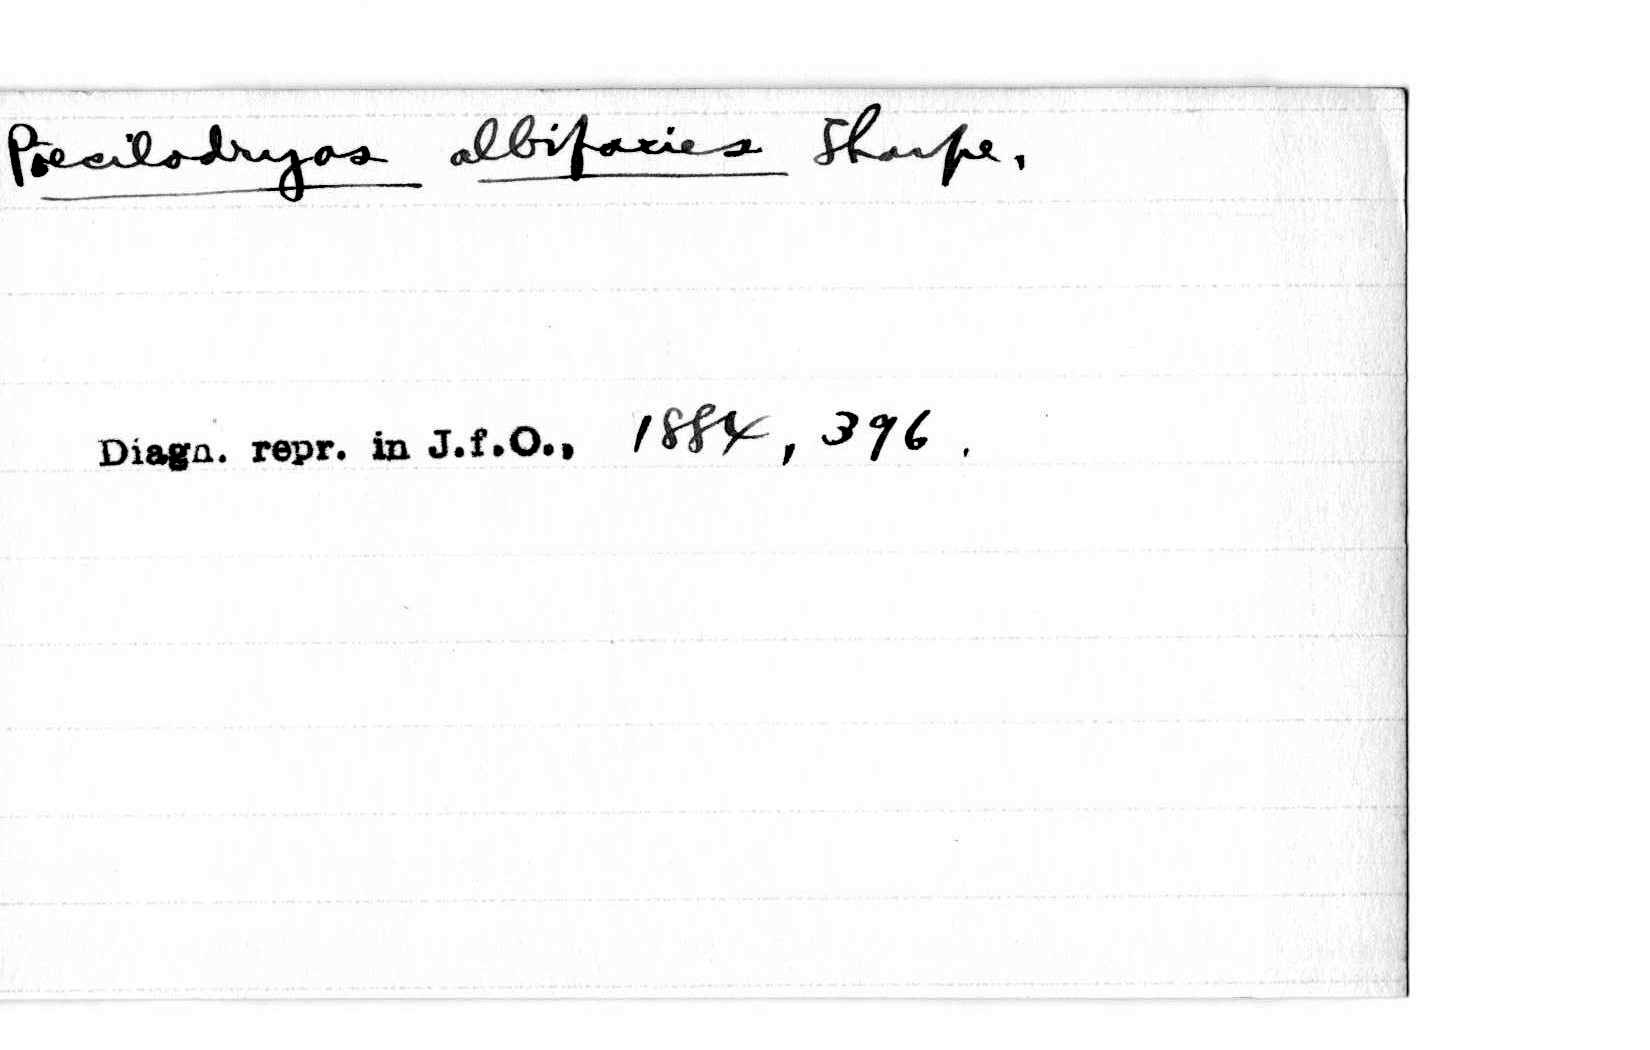 Poecilodryas albifacies Sharpe.
Diagn. repr. in J.f.O., 1884, 396.